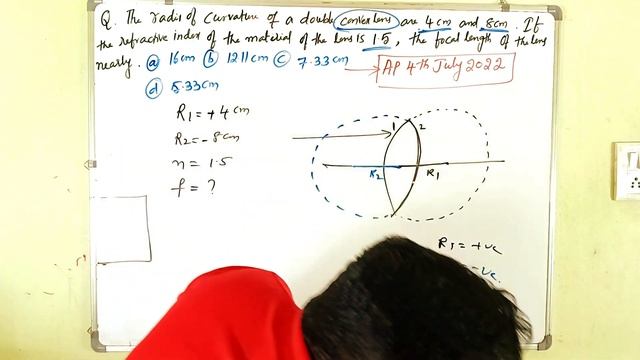 Q. The radii of curvature of a double convex lens are 4 cm and 8cm. If
the refractive index of the material of the lens is 1.5, the focal length of the lens
nearly. (a) 16cm (b) 12.11 cm (c) 7.33 cm → AP 4th July 2022
(d) 5.33cm
R₁ = +4 cm
R₂ = -8 cm
n = 1.5
f = ?
1 2
R₂ R₁
R₁ = +ve
-ve.